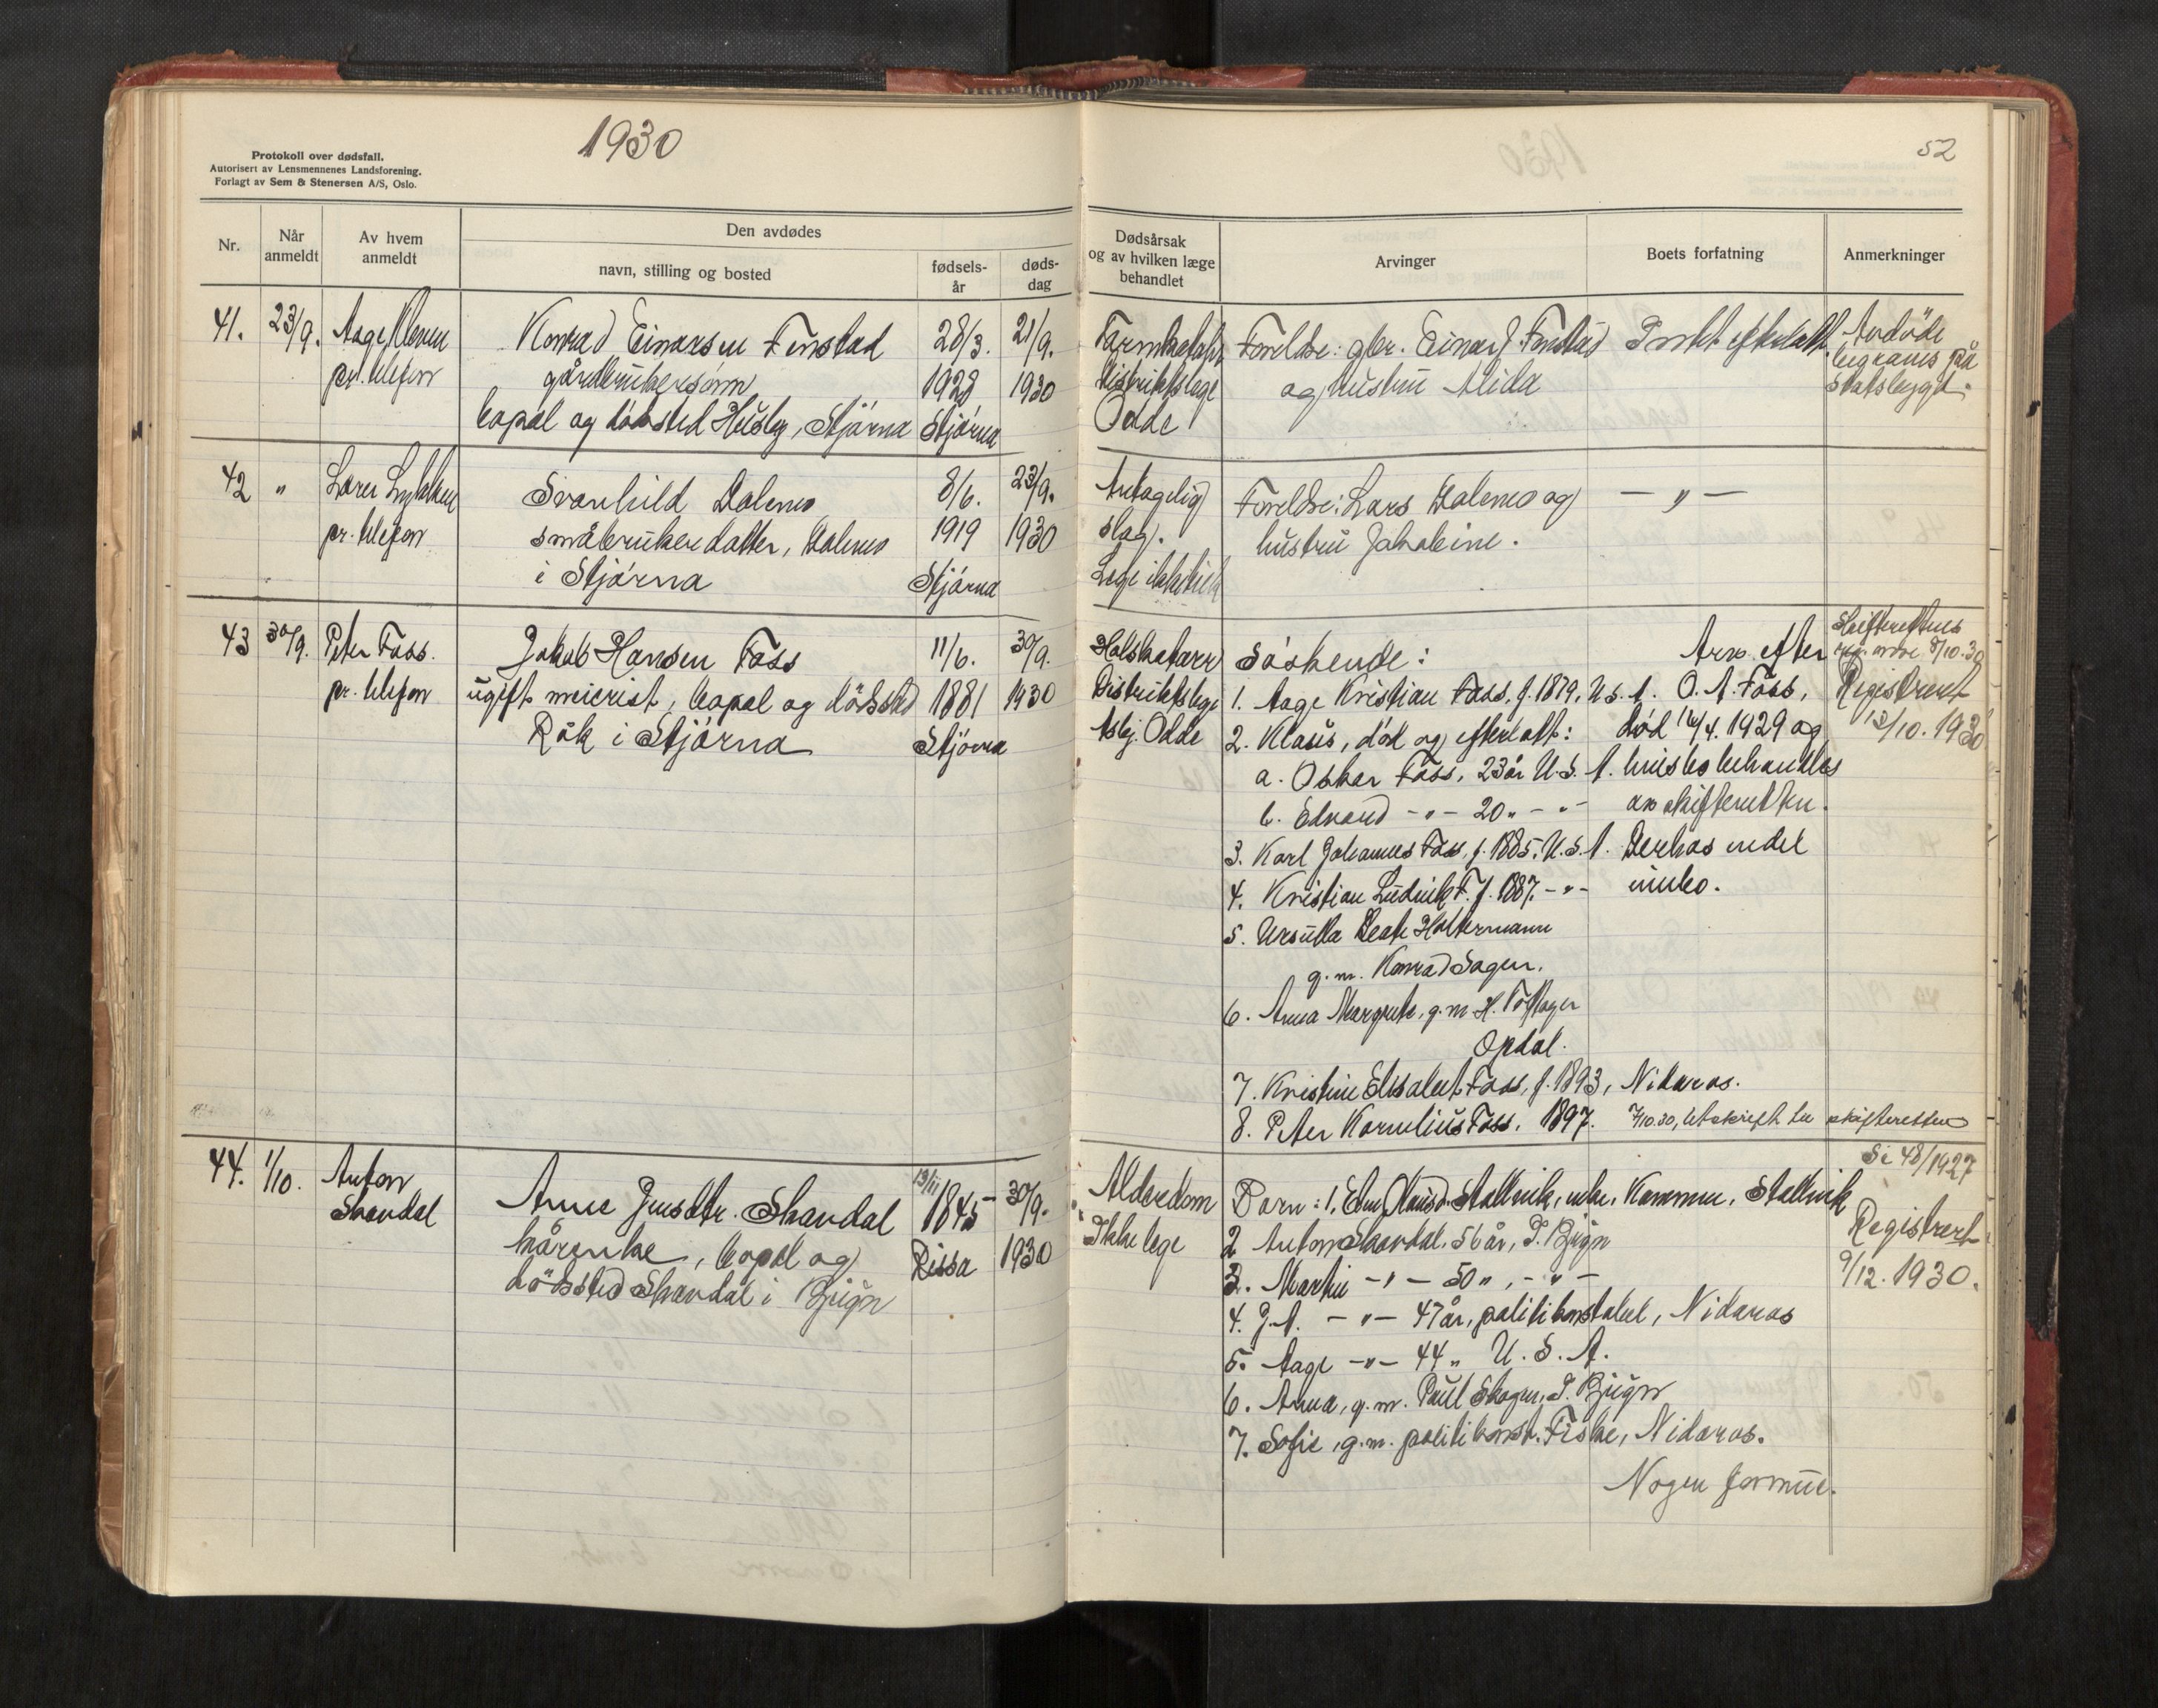 1930
52
Protokoll over dødsfall.
Autorisert av Lensmennenes Landsforening.
Forlagt av Sem & Stenersen A/S, Oslo.
Nr.
Når anmeldt
Av hvem anmeldt
Den avdødes
navn, stilling og bosted
fødsels-år
døds-dag
Dødsårsak og av hvilken læge behandlet
Arvinger
Boets forfatning
Anmerkninger
41. 23/9. Aage Kleven Konrad Einarsen Fenstad 28/3. 21/9.
pr. telefon gårdbrukersønn 1928 1930
bopæl og dødssted Husby, Stjørna Stjørna
Tarmkatarr
Distriktslæge
Odde
Foreldre: gbr. Einar J. Fenstad
og hustru Alida
Intet efterlatt.
Avdøde
begraves på
statsbygd.
42 " Lærer Svanhild Dalemo 8/6. 23/9.
pr. telefon småbrukerdatter, Dalemo 1919 1930
i Stjørna Stjørna
Antagelig
slag.
Lege ikke
Foreldre: Lars Dalemo og
hustru Jakobine.
— " —
43 30/9. Peter Foss. Jakob Hansen Foss 11/6. 30/9.
pr. telefon ugift meierist, bopæl og dødssted 1881 1930
Råk i Stjørna Stjørna
Halskatarr
Distriktslege
Asbj. Odde
Søskende:
1. Aage Kristian Foss, f. 1879, U.S.A.
2. Klaus, død og efterlatt:
a. Oskar Foss, 23 år U.S.A.
b. Edvard - " - 20 " - " -
3. Karl Johannes Foss, f. 1885, U.S.A.
4. Kristian Ludvik F. f. 1887. - " -
5. Ursulla Beate Holtermann
g.m. Konrad Sagen.
6. Anna Margrete, g.m. H.
Opdal.
7. Kristine Elisabet Foss, f. 1893, Nidaros.
8. Peter Kornelius Foss. 1897.
Arv efter
O. A. Foss,
død 16/4. 1929 og
hvis bo behandles
av skifteretten.
Derhos endel
innbo.
7/10.30, utskrift til skifteretten
Skifterettens
8/10.30
Registrert
13/10. 1930
44. 1/10. Anton Anne Jensdtr. Skavdal 13/11 1845 30/9.
Skavdal kårenke, bopæl og Rissa 1930
dødssted Skavdal i Bjugn
Alderdom
Ikke lege
Barn: 1. Stallvik, Stallvik
2 Anton Skavdal. 56 år, Bjugn
3. Martin - " - 50 ", - " -
4. J. A. - " - 47 år, politikonstabel, Nidaros
5. Aage - " - 44 " U.S.A.
6. Anna, g.m. Paul Skagen, Bjugn
7. Sofie, g.m. politikonst. Fiske, Nidaros.
Nogen formue.
Se 48/1927
Registrert
9/12. 1930.